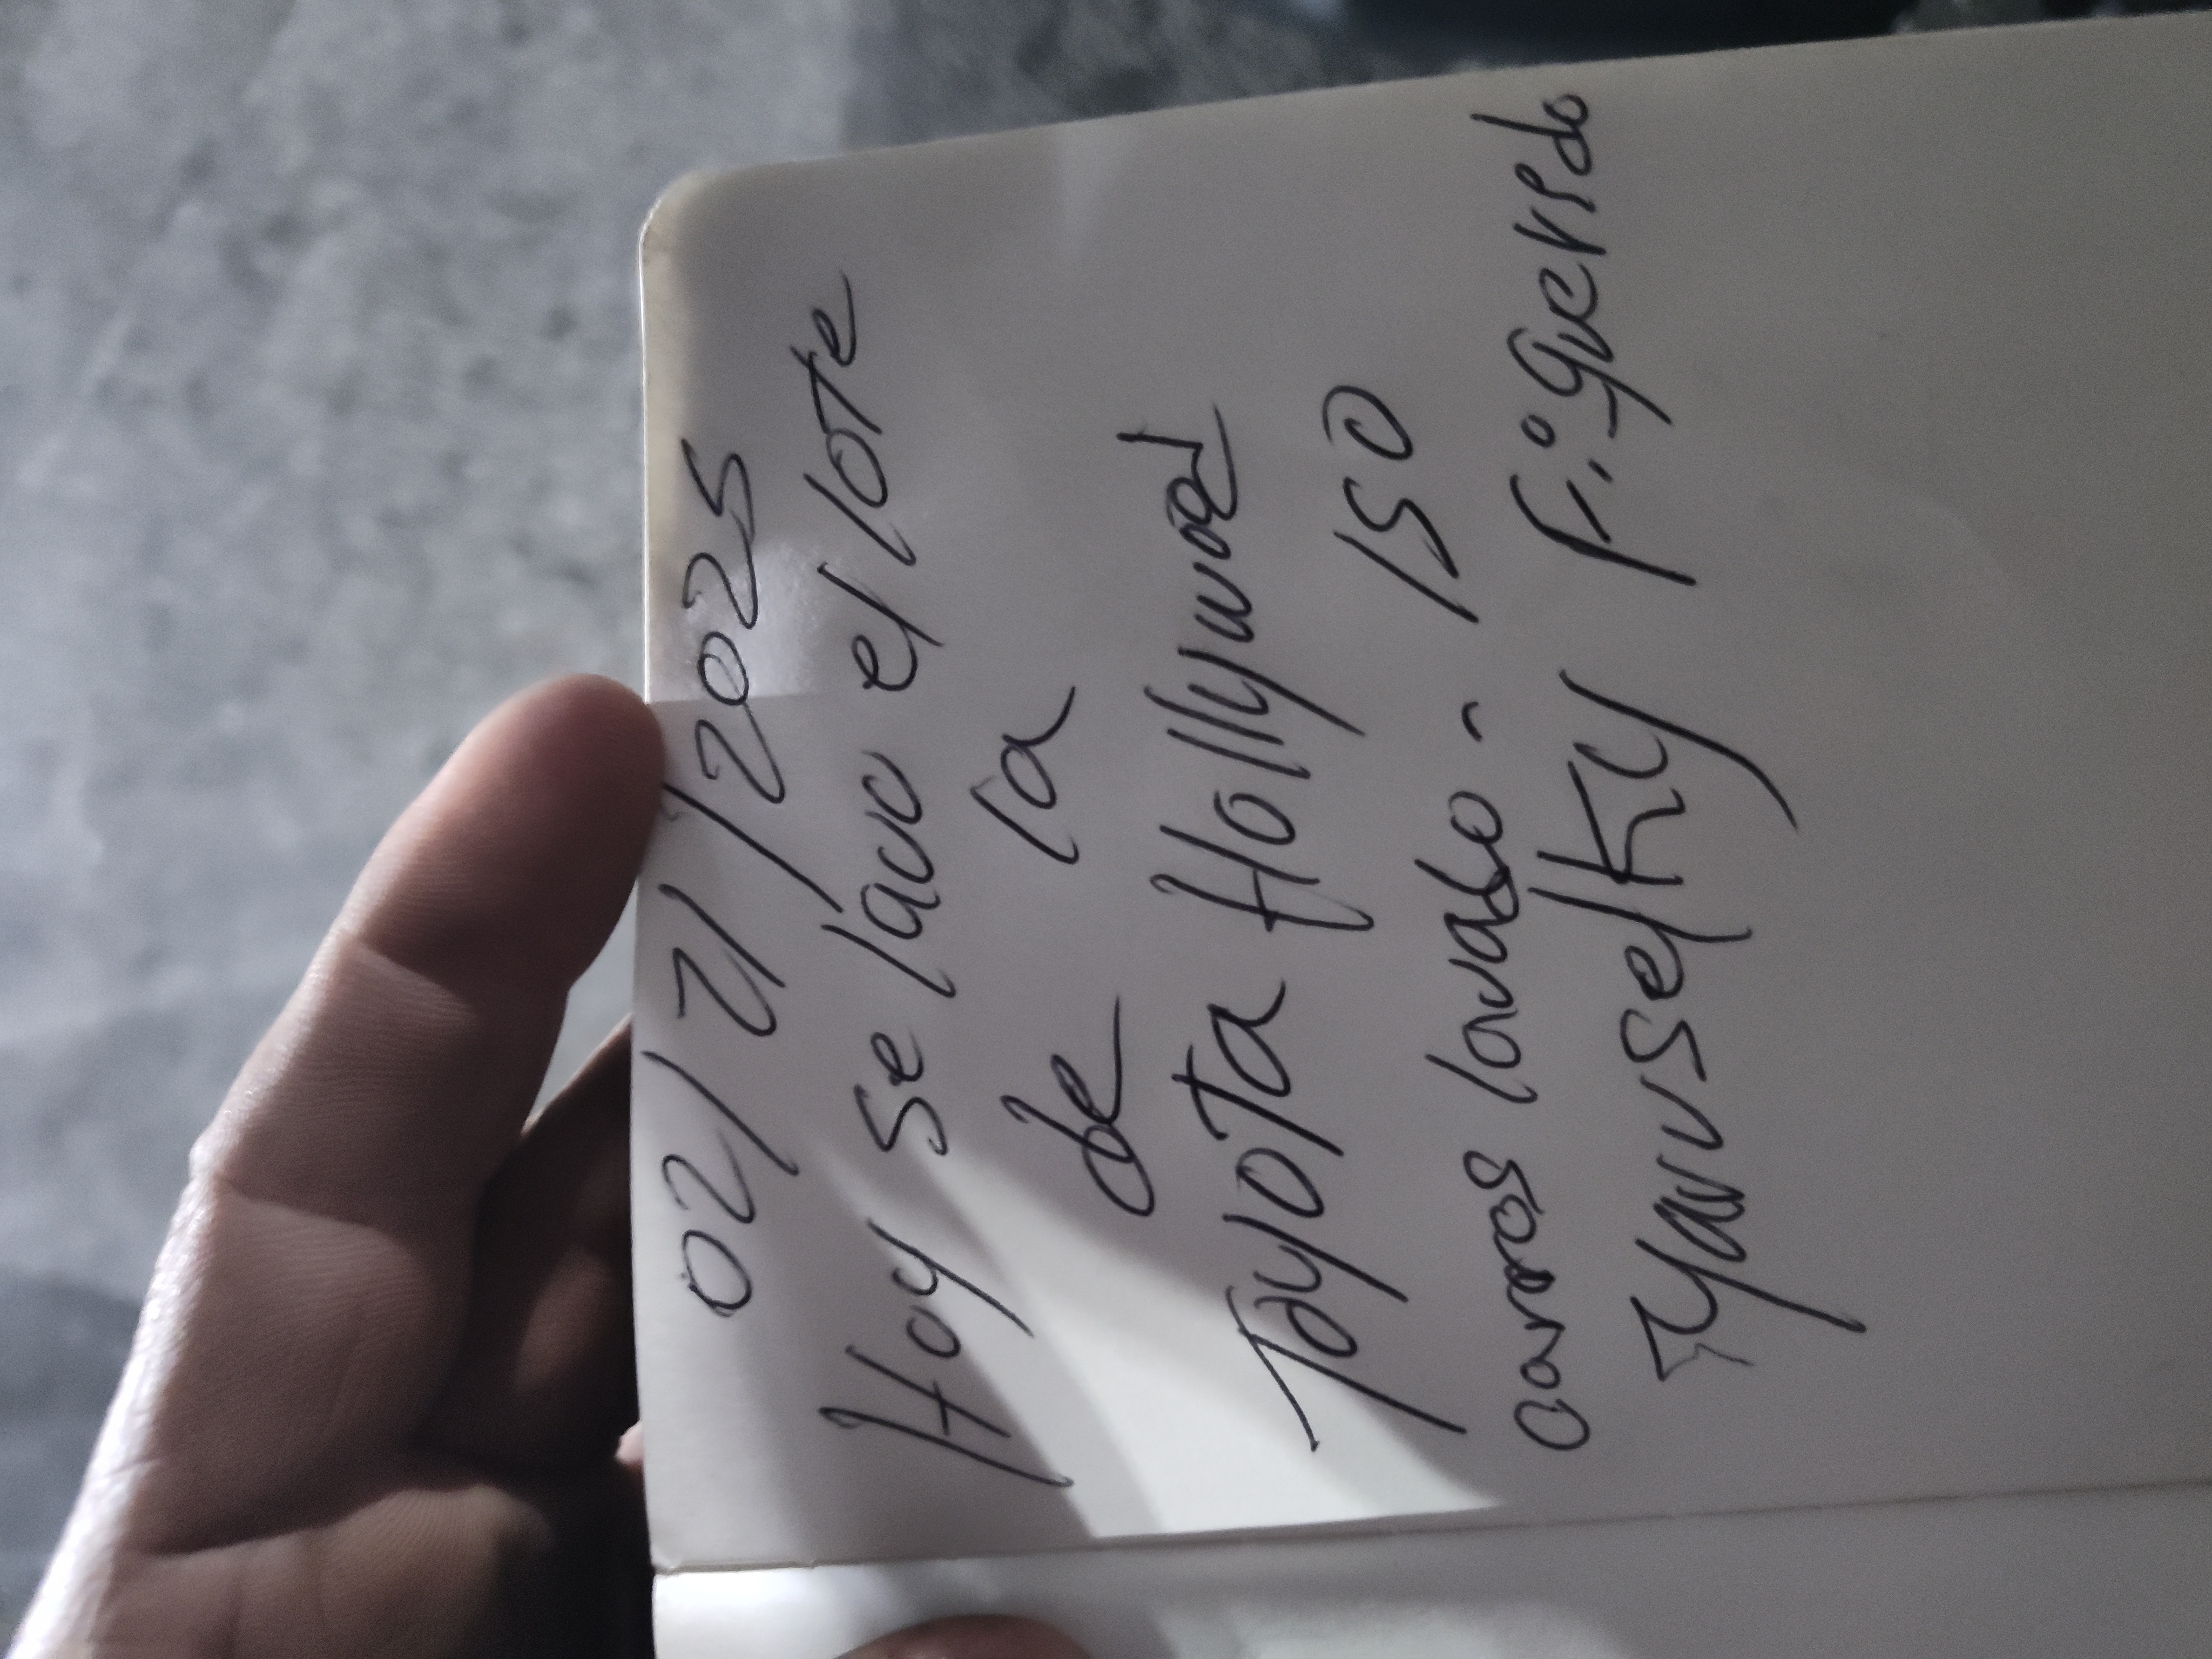 02/21/2025
Hoy se lavo el lote
de la
Toyota Hollywood
150
carros lavado.
Yanselky Figuerido